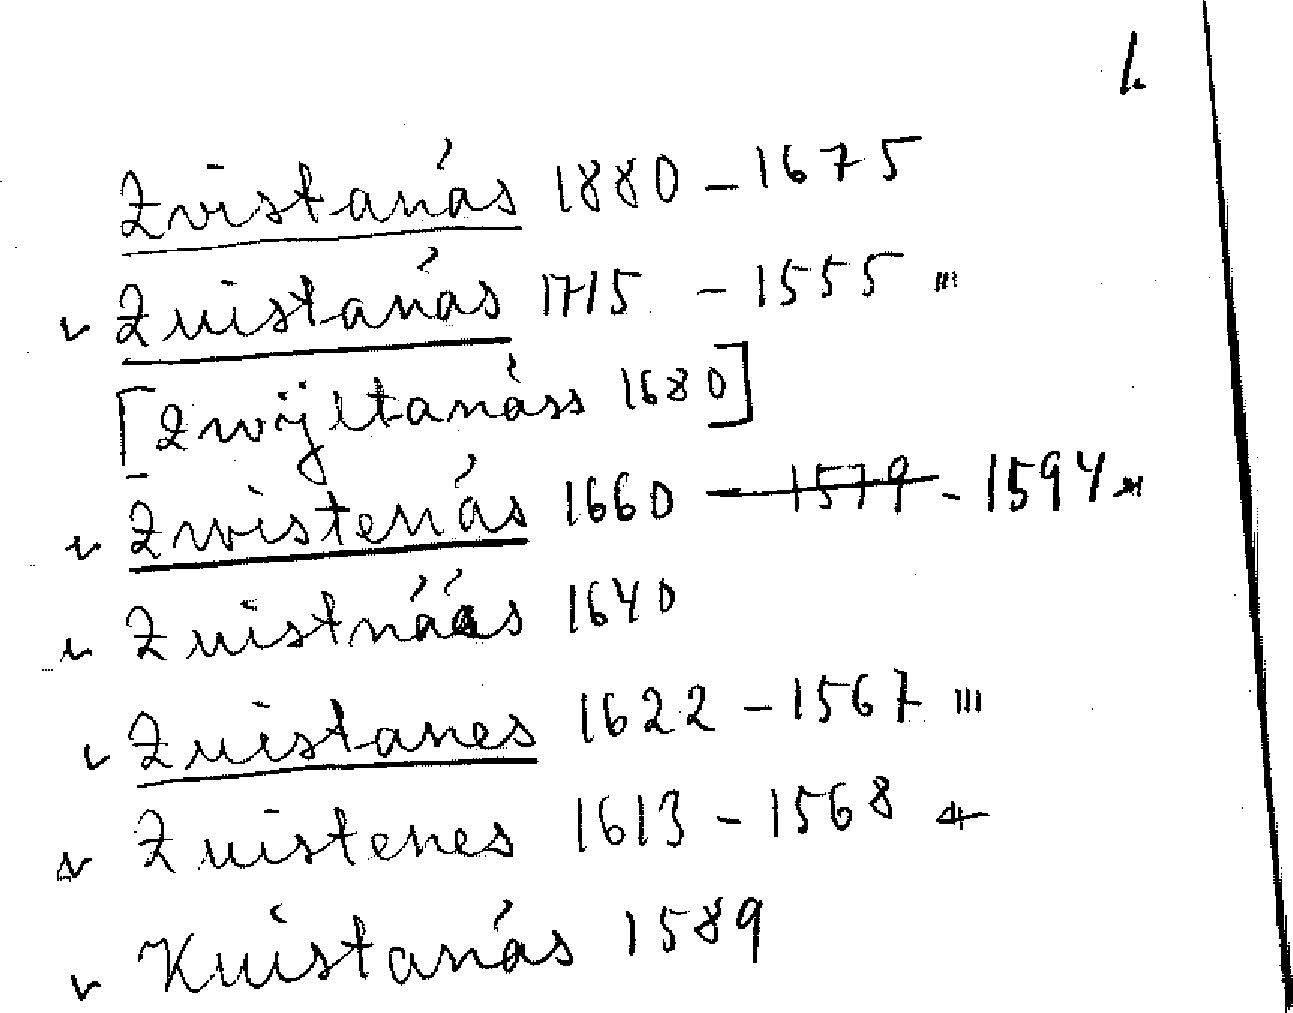 L
Zvistanás 1880 - 1675
v Zuistanás 1715 - 1555 III
[Zwijltanáss 1680]
v Zwistenás 1660 - 1579 - 1594 III
v Zuistnáás 1640
v Zuistanes 1622 - 1567 III
v Zuistenes 1613 - 1568 4
v Kuistanás 1589